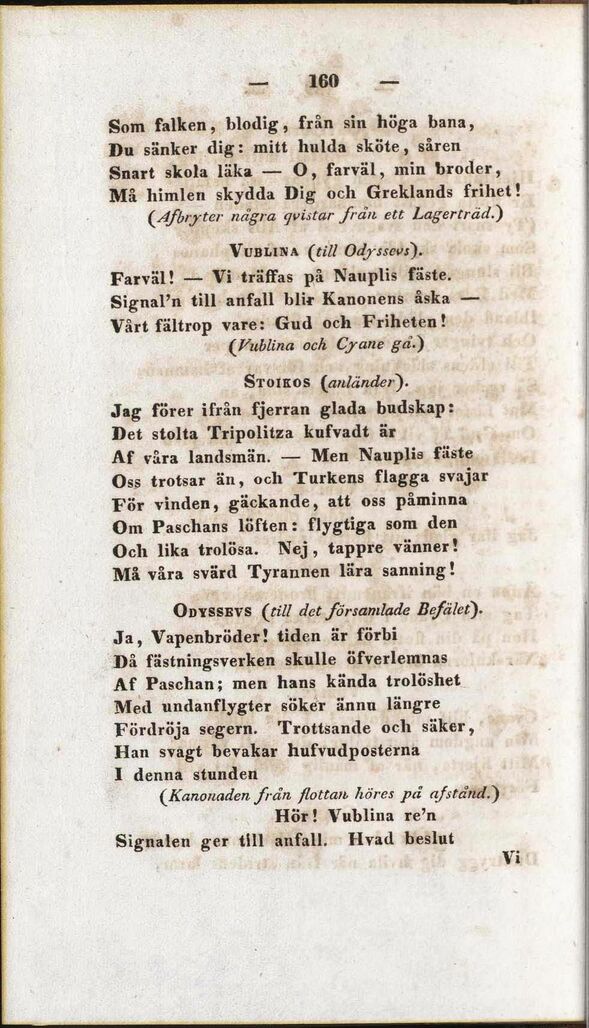 — 160 —
Som falken, blodig, från sin höga bana,
Du sänker dig: mitt hulda sköte, såren
Snart skola läka — O, farväl, min broder,
Må himlen skydda Dig och Greklands frihet!
(Afbryter några qvistar från ett Lagerträd.)
VUBLINA (till Odyssevs).
Farväl! — Vi träffas på Nauplis fäste.
Signal'n till anfall blir Kanonens åska —
Vårt fältrop vare: Gud och Friheten!
(Vublina och Cyane gå.)
STOIKOS (anländer).
Jag förer ifrån fjerran glada budskap:
Det stolta Tripolitza kufvadt är
Af våra landsmän. — Men Nauplis fäste
Oss trotsar än, och Turkens flagga svajar
För vinden, gäckande, att oss påminna
Om Paschans löften: flygtiga som den
Och lika trolösa. Nej, tappre vänner!
Må våra svärd Tyrannen lära sanning!
ODYSSEVS (till det församlade Befälet).
Ja, Vapenbröder! tiden är förbi
Då fästningsverken skulle öfverlemnas
Af Paschan; men hans kända trolöshet
Med undanflygter söker ännu längre
Fördröja segern. Trottsande och säker,
Han svagt bevakar hufvudposterna
I denna stunden
(Kanonaden från flottan höres på afstånd.)
Hör! Vublina re'n
Signalen ger till anfall. Hvad beslut
Vi